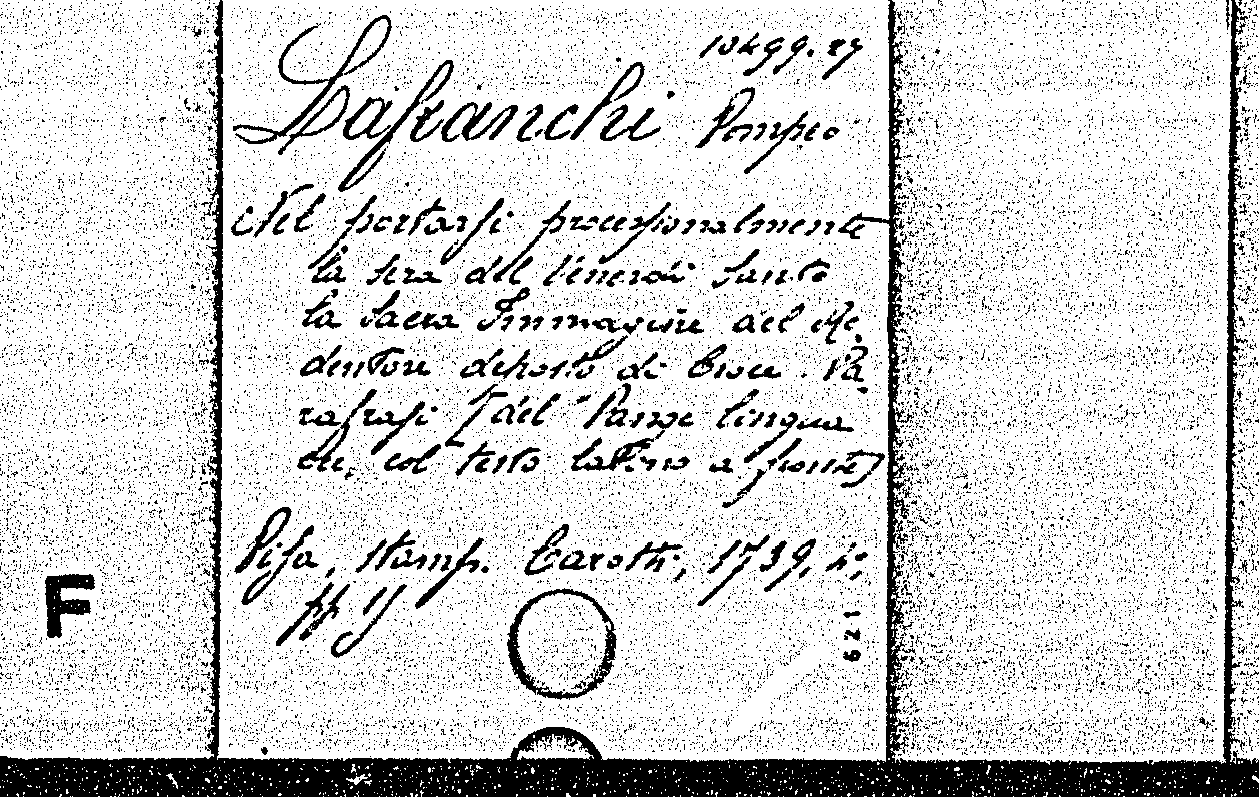 10499.27
Lafranchi Pompeo
Nel portarsi processionalmente
la sera del Venerdi Santo
la Sacra Immagine del Re-
dentore deposto di Croce. Pa-
rafrasi [del "Pange lingua
ecc, col testo latino a fronte]
Pisa, stamp. Carotti, 1739, 4°,
pp
621
F